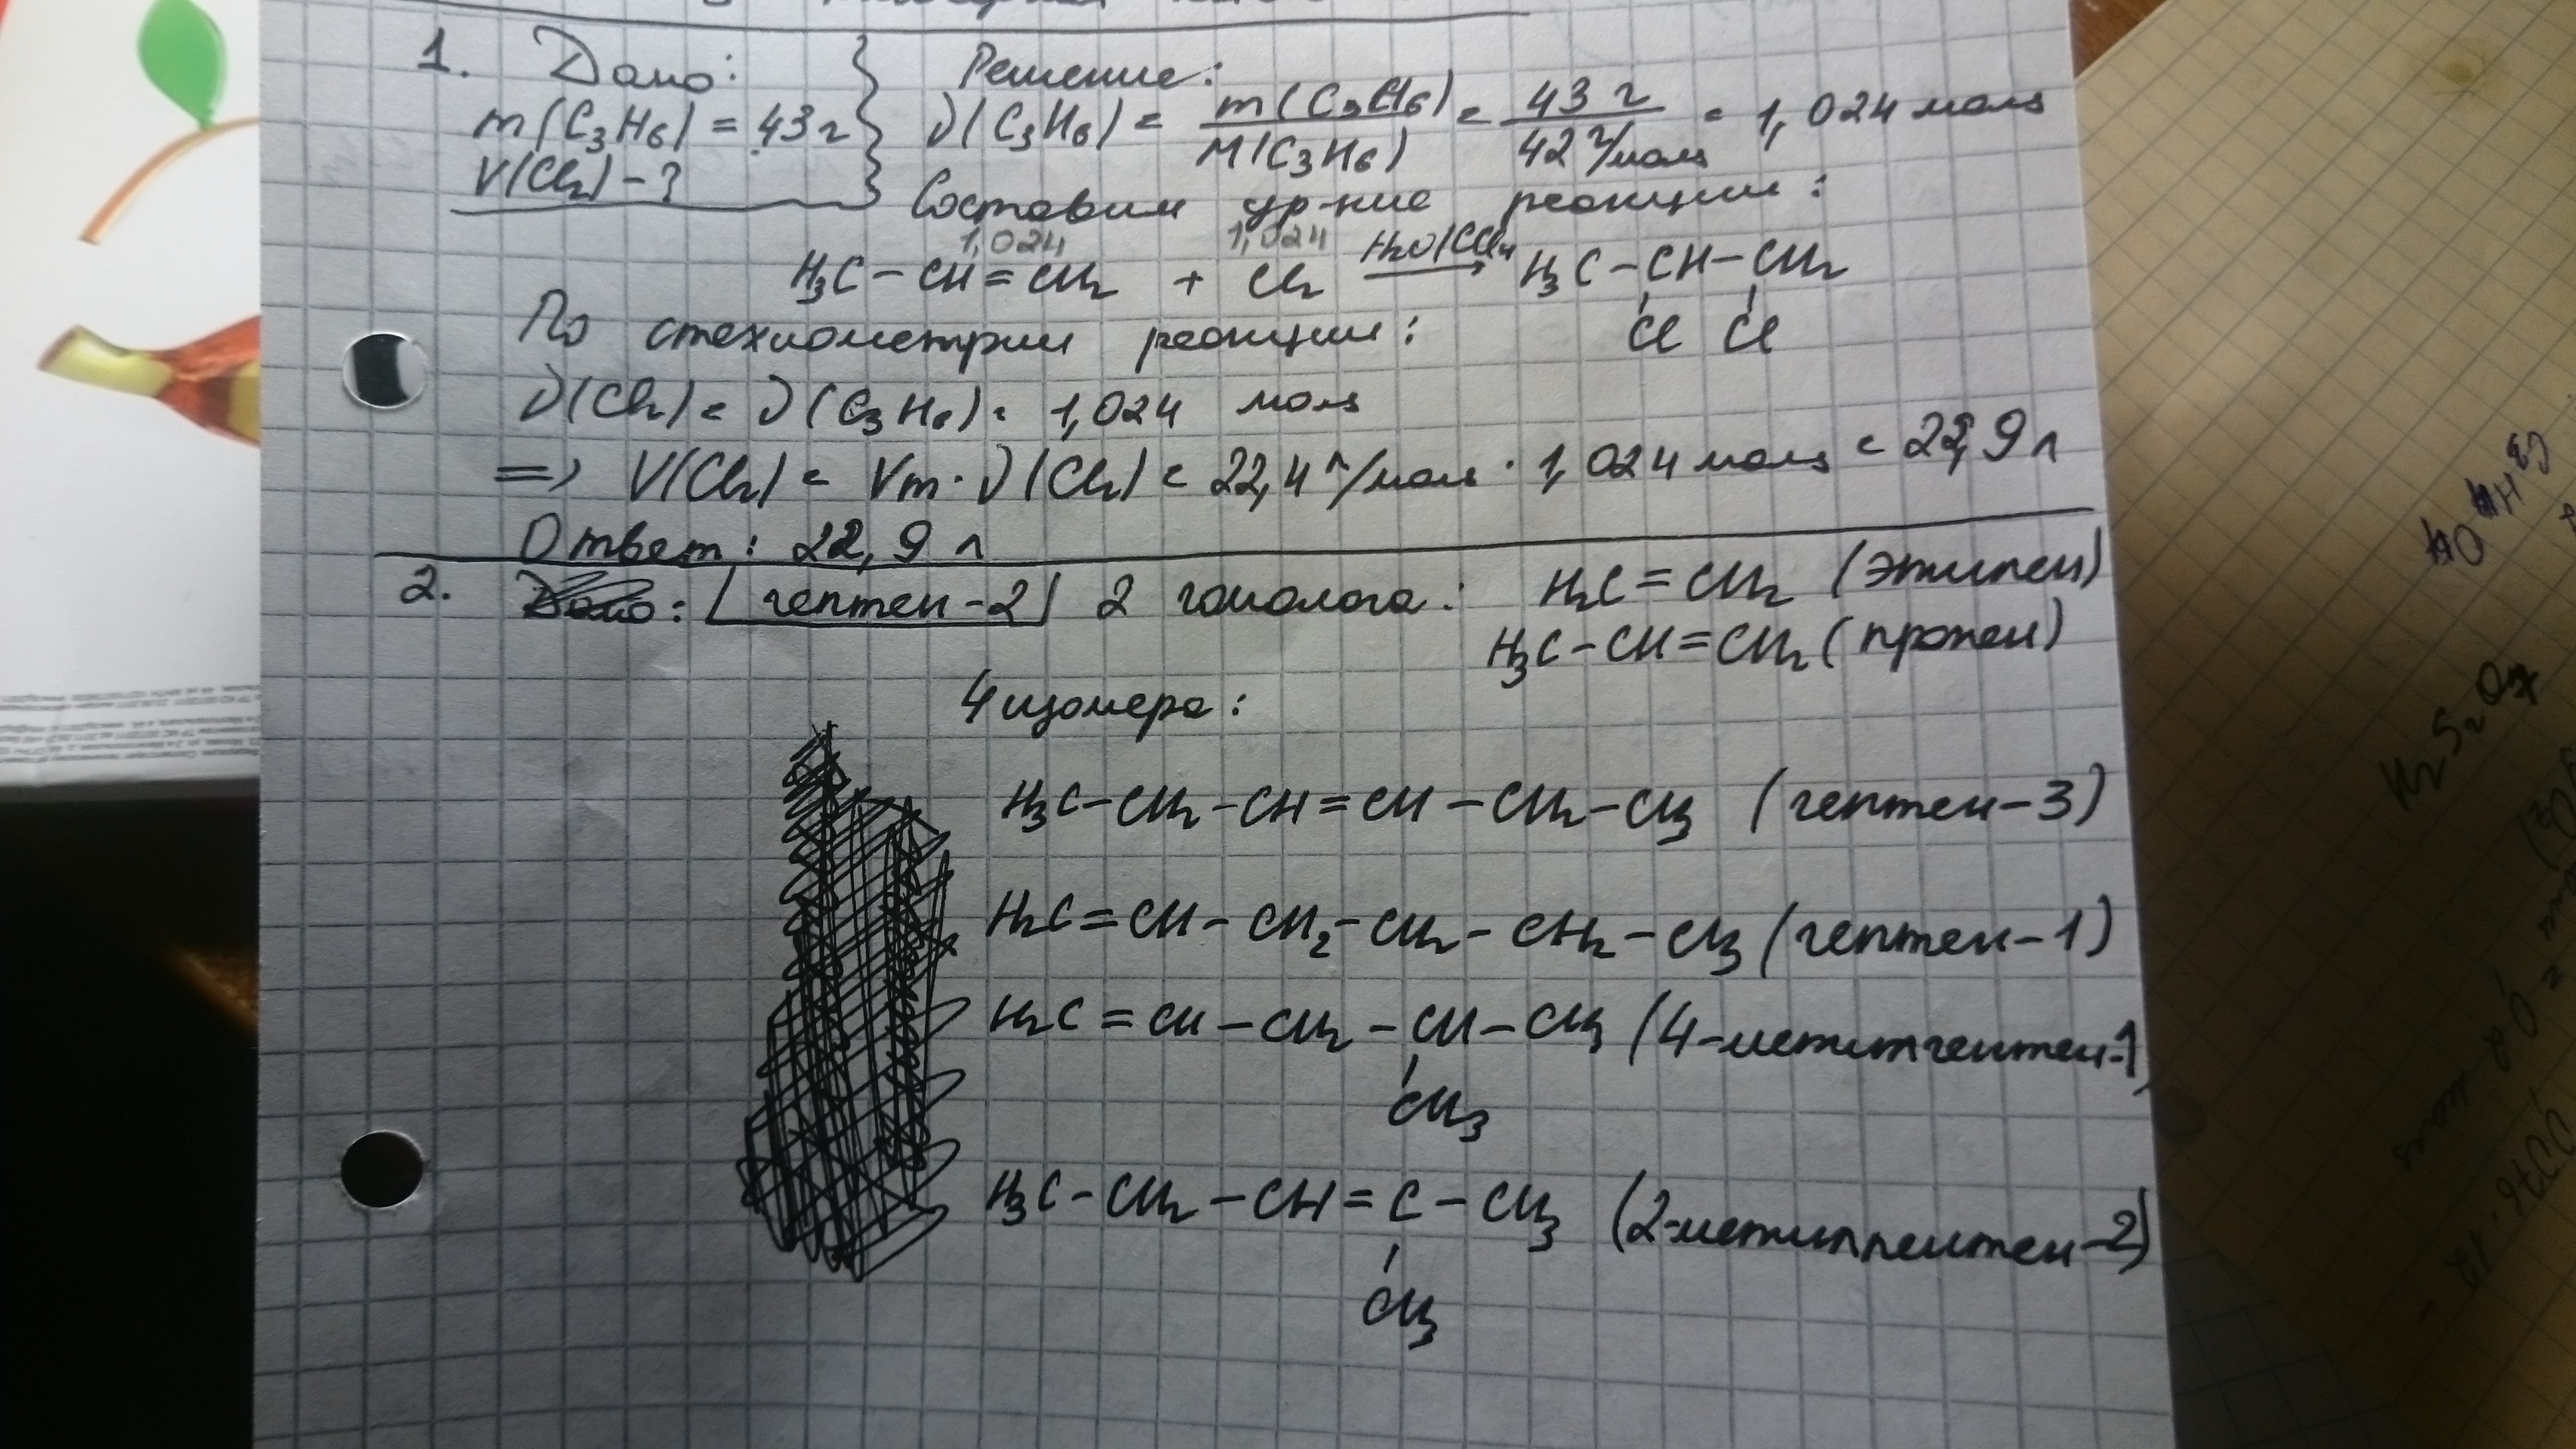 1. Дано: Решение:
m(C₃H₆) = 43 г ν(C₃H₆) = m(C₃H₆)/M(C₃H₆) = 43 г/42 г/моль = 1,024 моль
V(Cl₂) - ?
Составим ур-ние реакции:
1,024 1,024
H₃C-CH=CH₂ + Cl₂ →(H₂O/CCl₄) H₃C-CH-CH₂
Cl Cl
По стехиометрии реакции:
ν(Cl₂) = ν(C₃H₆) = 1,024 моль
=> V(Cl₂) = Vm·ν(Cl₂) = 22,4 л/моль · 1,024 моль = 22,9 л
Ответ: 22,9 л
2. Дано: гептен-2 2 гомолога: H₂C=CH₂ (этилен)
H₃C-CH=CH₂ (пропен)
4 изомера:
H₃C-CH₂-CH=CH-CH₂-CH₃ (гептен-3)
H₂C=CH-CH₂-CH₂-CH₂-CH₃ (гептен-1)
H₂C=CH-CH₂-CH-CH₃ (4-метилпентен-1)
CH₃
H₃C-CH₂-CH=C-CH₃ (2-метилпентен-2)
CH₃
H₂S₂O₇